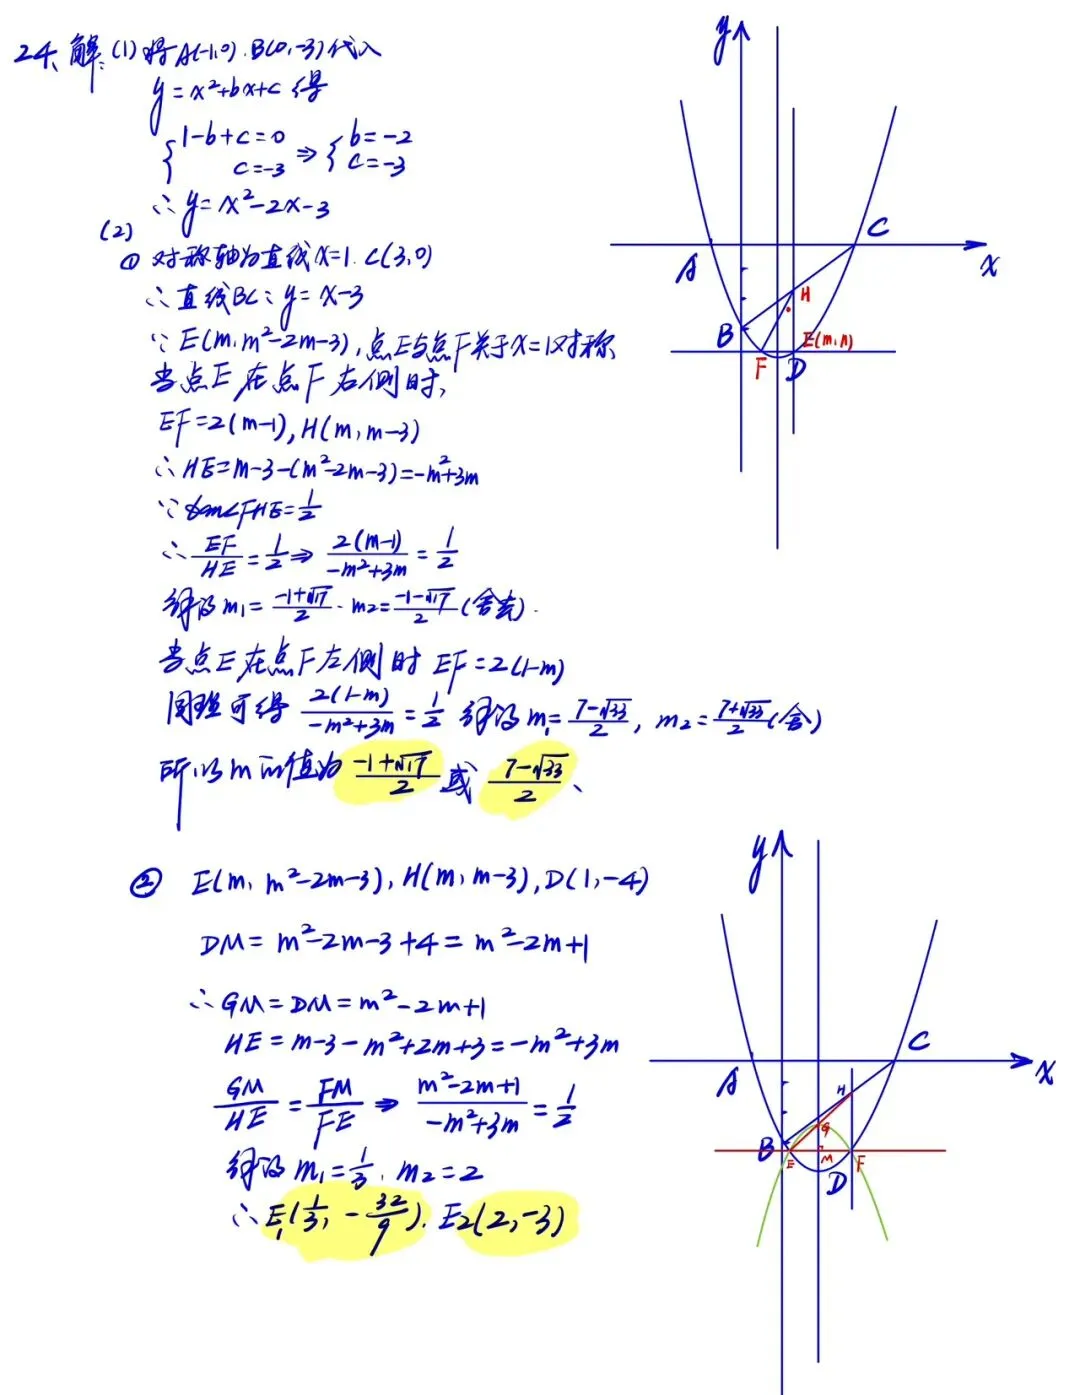 24、解:(1)将A(-1,0).B(0,-3)代入
y=x²+bx+c得
{1-b+c=0 c=-3 ⇒ {b=-2 c=-3
∴y=x²-2x-3
(2)
① 对称轴为直线x=1. C(3,0)
∴直线BC:y=x-3
∵E(m,m²-2m-3),点E与点F关于x=1对称
当点E在点F右侧时,
EF=2(m-1),H(m,m-3)
∴HE=m-3-(m²-2m-3)=-m²+3m
∵tan∠FHE=1/2
∴EF/HE=1/2⇒2(m-1)/(-m²+3m)=1/2
解得m₁=(-1+√17)/2.m₂=(-1-√17)/2(舍去).
当点E在点F左侧时 EF=2(1-m)
同理可得 2(1-m)/(-m²+3m)=1/2 解得m₁=(7-√33)/2, m₂=(7+√33)/2(舍)
所以m的值为(-1+√17)/2或(7-√33)/2、
② E(m,m²-2m-3),H(m,m-3),D(1,-4)
DM=m²-2m-3+4=m²-2m+1
∴GM=DM=m²-2m+1
HE=m-3-m²+2m+3=-m²+3m
GM/HE=FM/FE⇒(m²-2m+1)/(-m²+3m)=1/2
解得m₁=1/3,m₂=2
∴E₁(1/3,-32/9).E₂(2,-3)
y
A
C
x
B
H
F
D
E(m,n)
y
A
C
x
B
H
G
E
M
F
D